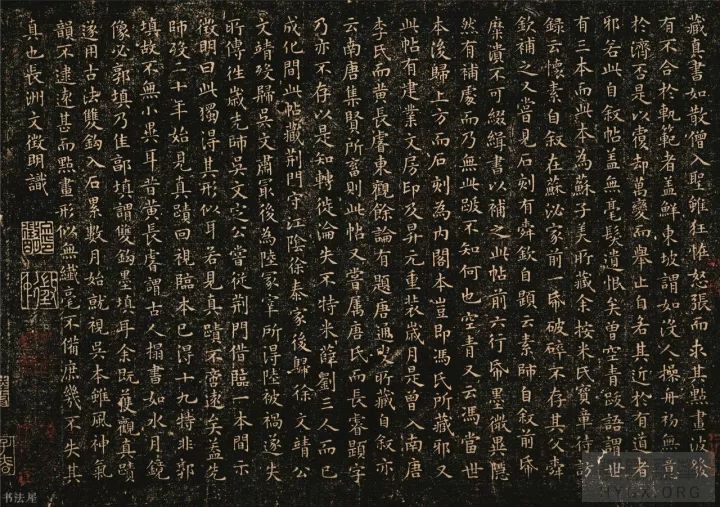 藏真書如散僧入聖雖狂怪怒張而求其點畫波發
有不合於軌範者蓋鮮東坡謂如沒人操舟初無意
於濟否是以覆却萬變而舉止自若其近於有道者
邪若此自敘帖蓋無毫髮遺恨矣曾空青跋語謂世
有三本而此本為蘇子美所藏余按米氏寶章待訪
錄云懷素自敘在蘇泌家前一帋破碎不存其父舜
欽補之又嘗見石刻有舜欽自題云素師自敘前帋
糜潰不可綴緝書以補之此帖前六行帋墨微異隱
然有補處而乃無此跋不知何也空青又云馮當世
本後歸上方而石刻為內閣本豈即馮氏所藏邪又
此帖有建業文房印及昇元重裝歲月是曾入南唐
李氏而黃長睿東觀餘論有題唐通叟所藏自敘亦
云南唐集賢所畜則此帖又嘗屬唐氏而長睿題字
乃亦不存以是知轉徙淪失不特米薛劉三人而已
成化間此帖藏荊門守江陰徐泰家後歸徐文靖公
文靖歿歸吳文肅最後為陸冢宰所得陸被禍遂失
所傳往歲先師吳文定公嘗從荊門借臨一本間示
徵明曰此獨得其形似耳若見真蹟不啻遠矣蓋先
師歿二十年始見真蹟回視臨本已得十九特非郭
填故不無小異耳昔黃長睿謂古人搨書如水月鏡
像必郭填乃佳郭填謂雙鈎墨填耳余既獲觀真蹟
遂用古法雙鈎入石累數月始就視吳本雖風神氣
韻不逮遠甚而點畫形似無纖毫不備庶幾不失其
真也長洲文徵明識
书法屋